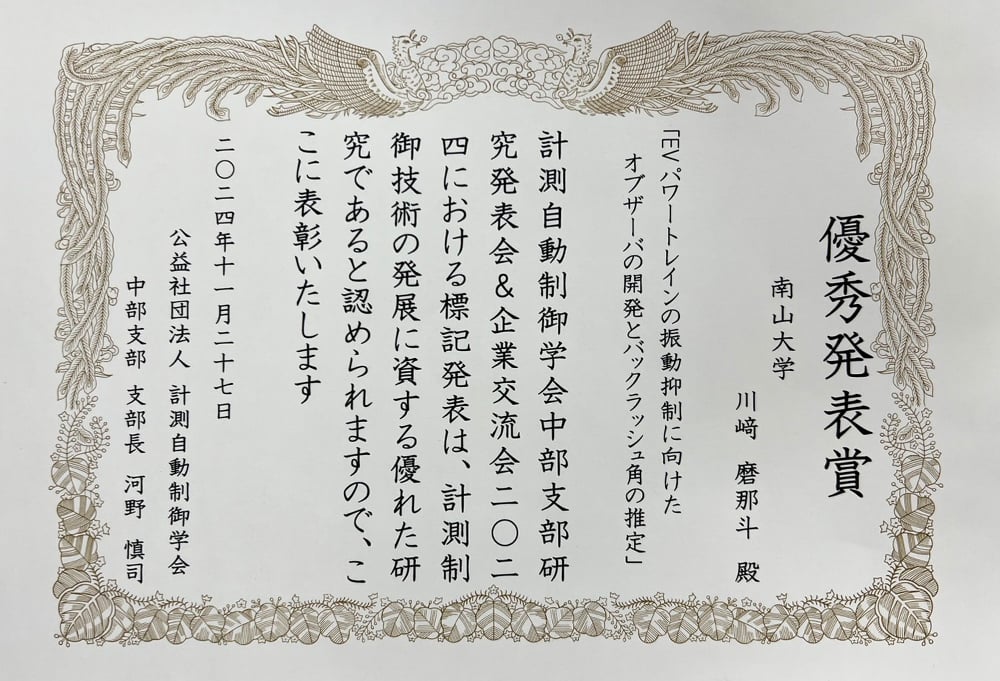 優秀発表賞
南山大学
川﨑 磨那斗 殿
「EVパワートレインの振動抑制に向けた
オブザーバの開発とバックラッシュ角の推定」
計測自動制御学会中部支部研
究発表会&企業交流会二〇二
四における標記発表は、計測制
御技術の発展に資する優れた研
究であると認められますので、こ
こに表彰いたします
二〇二四年十一月二十七日
公益社団法人 計測自動制御学会
中部支部 支部長 河野 慎司